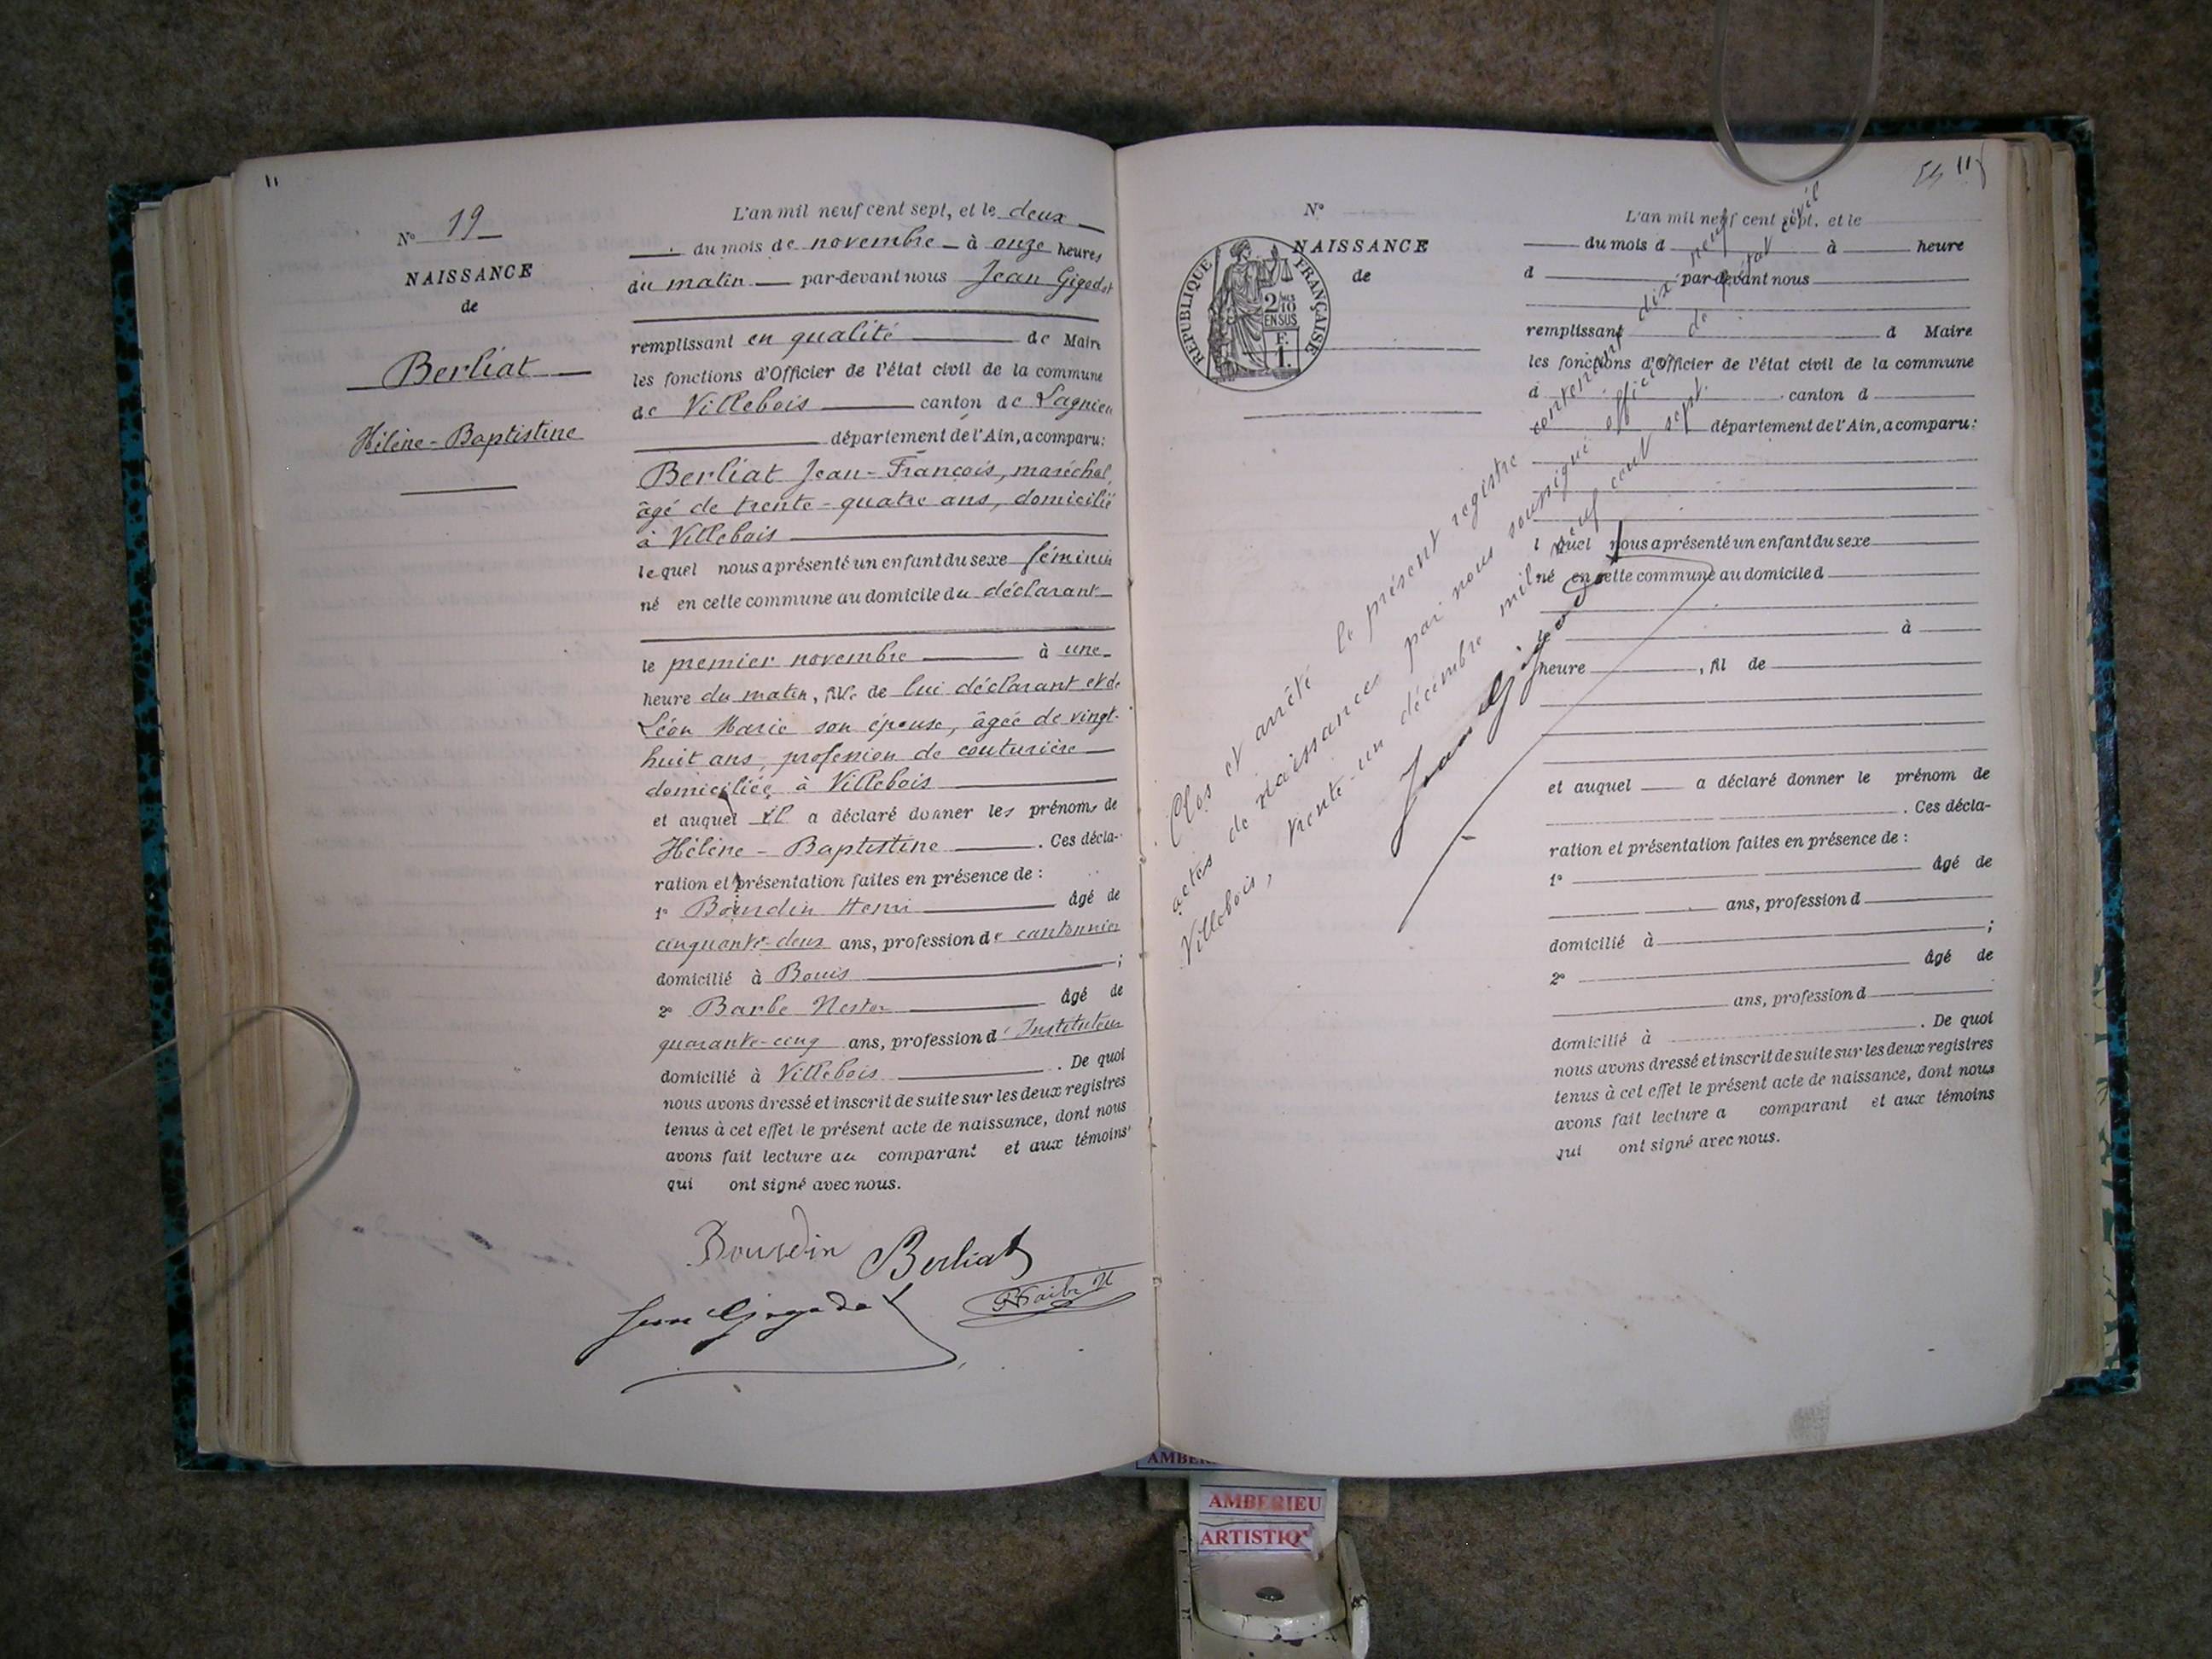 11
N° 19
NAISSANCE
de
Berliat
Hélène-Baptistine
L'an mil neuf cent sept, et le deux
du mois de novembre à onze heures
du matin par-devant nous Jean Gigodot
remplissant en qualité de Maire
les fonctions d'Officier de l'état civil de la commune
de Villebois canton de Lagnieu
département de l'Ain, a comparu:
Berliat Jean-François, maréchal,
âgé de trente-quatre ans, domicilié
à Villebois
lequel nous a présenté un enfant du sexe féminin
né en cette commune au domicile du déclarant
le premier novembre à une
heure du matin, fille de lui déclarant et de
Léon Marie son épouse, âgée de vingt-
huit ans, profession de couturière
domiciliée à Villebois
et auquel il a déclaré donner les prénoms de
Hélène-Baptistine. Ces décla-
ration et présentation faites en présence de :
1° Bourdin Henri âgé de
cinquante-deux ans, profession de cantonnier
domicilié à Bouis ;
2° Barbe Nestor âgé de
quarante-cinq ans, profession d'Instituteur
domicilié à Villebois. De quoi
nous avons dressé et inscrit de suite sur les deux registres
tenus à cet effet le présent acte de naissance, dont nous
avons fait lecture au comparant et aux témoins
qui ont signé avec nous.
Bourdin Berliat
Jean Gigodot
54
N°
NAISSANCE
de
REPUBLIQUE FRANÇAISE
2/10
EN SUS
F.
1.
L'an mil neuf cent sept, et le
du mois d à heure
d par-devant nous
remplissant d Maire
les fonctions d'Officier de l'état civil de la commune
d canton d
département de l'Ain, a comparu:
l quel nous a présenté un enfant du sexe
né en cette commune au domicile d
le à
heure , fil de
et auquel a déclaré donner le prénom de
. Ces décla-
ration et présentation faites en présence de :
1° âgé de
ans, profession d
domicilié à ;
2° âgé de
ans, profession d
domicilié à . De quoi
nous avons dressé et inscrit de suite sur les deux registres
tenus à cet effet le présent acte de naissance, dont nous
avons fait lecture a comparant et aux témoins
qui ont signé avec nous.
Clos et arrêté le présent registre contenant dix neuf
actes de naissances par nous soussigné officier de l'état civil
Villebois, trente-un décembre mil neuf cent sept.
Jean Gigodot
AMBERIEU
ARTISTIQ